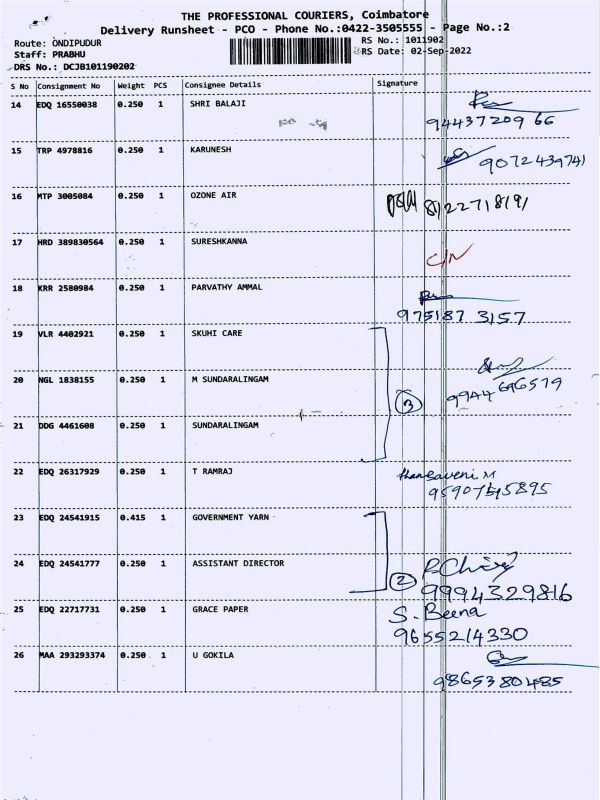 THE PROFESSIONAL COURIERS, Coimbatore
Delivery Runsheet - PCO - Phone No.:0422-3505555 - Page No.:2
Route: ONDIPUDUR RS No.: 1011902
Staff: PRABHU RS Date: 02-Sep-2022
DRS No.: DCJB101190202
S No Consignment No Weight PCS Consignee Details Signature
14 EDQ 16550038 0.250 1 SHRI BALAJI
9443720966
15 TRP 4978816 0.250 1 KARUNESH
9072439741
16 MTP 3005084 0.250 1 OZONE AIR
8122718191
17 HRD 389830564 0.250 1 SURESHKANNA
C/N
18 KRR 2580984 0.250 1 PARVATHY AMMAL
9751873157
19 VLR 4402921 0.250 1 SKUHI CARE
20 NGL 1838155 0.250 1 M SUNDARALINGAM
9944696579
3
21 DDG 4461608 0.250 1 SUNDARALINGAM
22 EDQ 26317929 0.250 1 T RAMRAJ
thangaveni M
23 EDQ 24541915 0.415 1 GOVERNMENT YARN
24 EDQ 24541777 0.250 1 ASSISTANT DIRECTOR
2
9994329816
25 EDQ 22717731 0.250 1 GRACE PAPER
S. Beena
9655214330
26 MAA 293293374 0.250 1 U GOKILA
9865380485